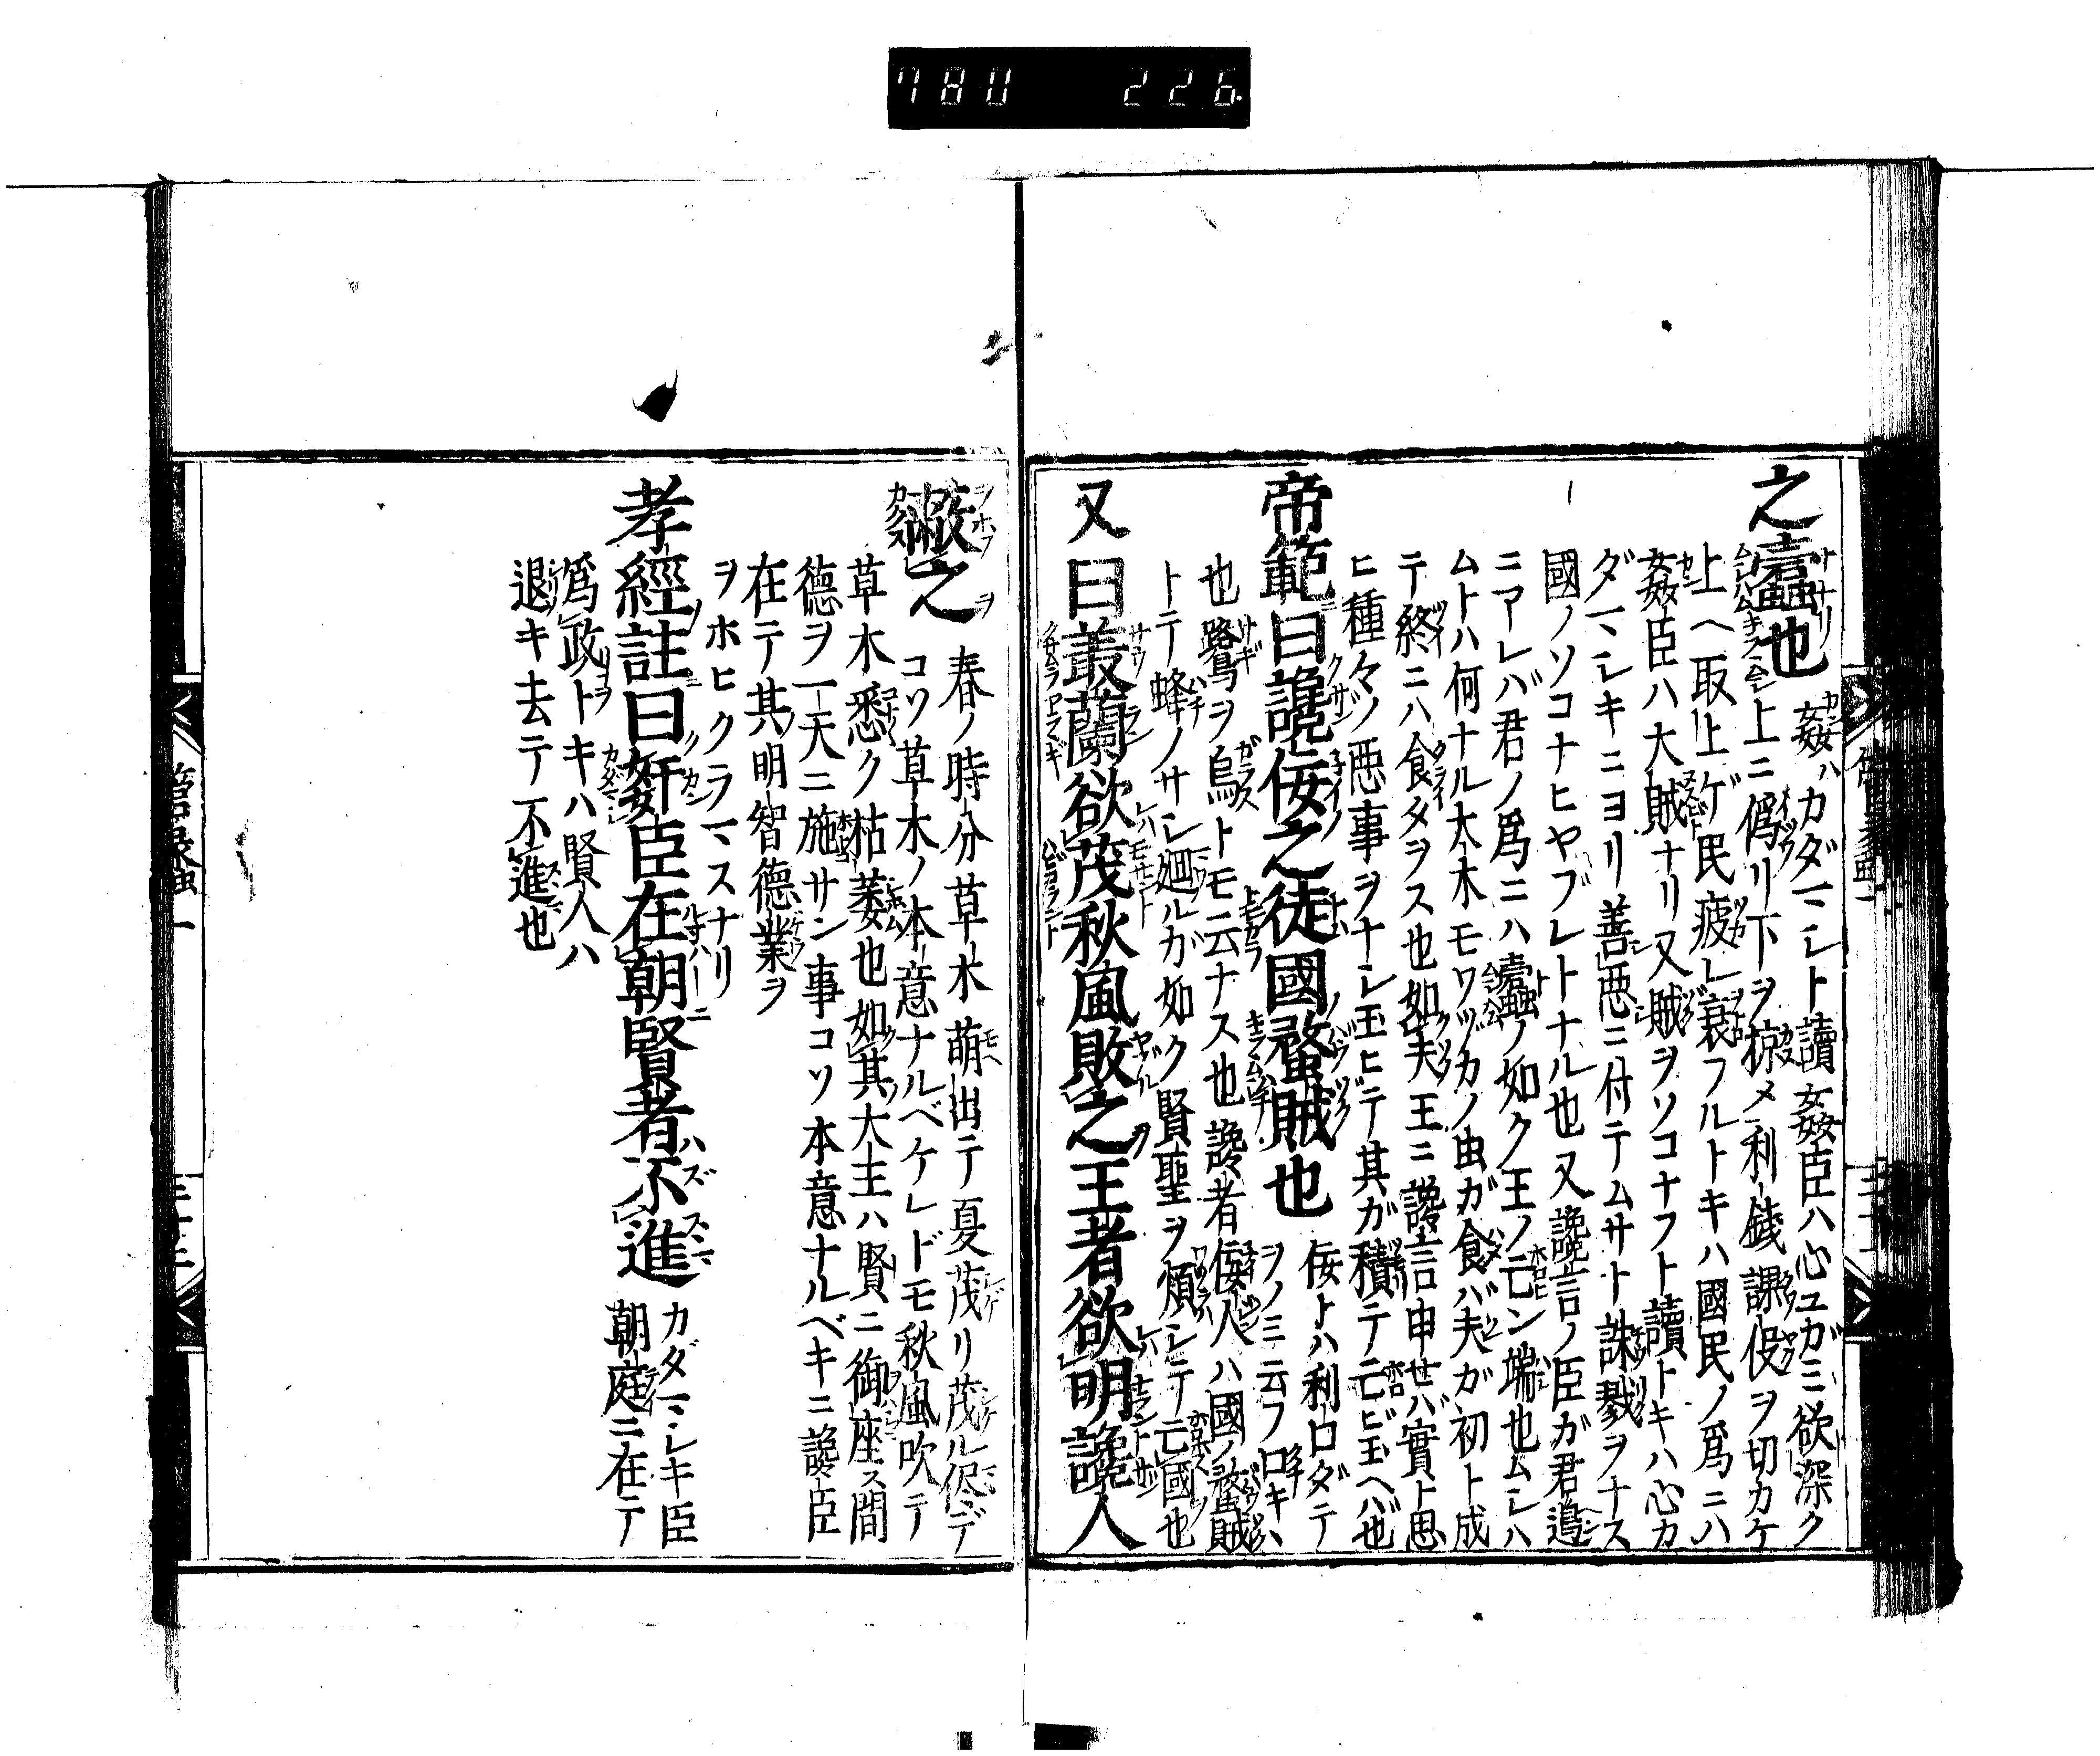 780 226
之蠹也 姦ハカダマシト讀姦臣ハ心ユガミ欲深ク
上ニ僞リ下ヲ掠メ利錢課伇ヲ切カケ
上ヘ取上ゲ民疲レ衰フルトキハ國民ノ爲ニハ
姦臣ハ大賊ナリ又賊ヲソコナフト讀トキハ心カ
ダマシキニヨリ善悪ニ付テムサト誅戮ヲナス
國ノソコナヒヤブレトナル也又讒言ノ臣ガ君邉
ニアレバ君ノ爲ニハ蠹ノ如ク王ノ亡ン端也ムシハ
ムトハ何ナル大木モワヅカノ虫ガ食バ夫ガ初ト成
テ終ニハ食タヲス也如夫王ニ讒言申セバ實ト思
ヒ種々ノ悪事ヲナシ玉ヒテ其ガ積テ亡ビ玉ヘバ也
帝範曰讒佞之徒國蟊賊也 佞トハ利口ダテ
ヲノミ云フ口キハ
也鷺ヲ烏トモ云ナス也讒者佞人ハ國ノ蟊賊
トテ蜂ノサシ廻ルガ如ク賢聖ヲ煩シテ亡國也
又曰叢蘭欲茂秋風敗之王者欲明讒人
蔽之 春ノ時分草木萌出テ夏茂リ茂ル侭デ
コソ草木ノ本意ナルベケレドモ秋風吹テ
草木悉ク枯萎也如其大主ハ賢ニ御座ス間
德ヲ一天ニ施サン事コソ本意ナルベキニ讒臣
在テ其明智德業ヲ
ヲホヒクラマスナリ
孝經註曰姦臣在朝賢者不進 カダマシキ臣
朝庭ニ在テ
爲政トキハ賢人ハ
退キ去テ不進也